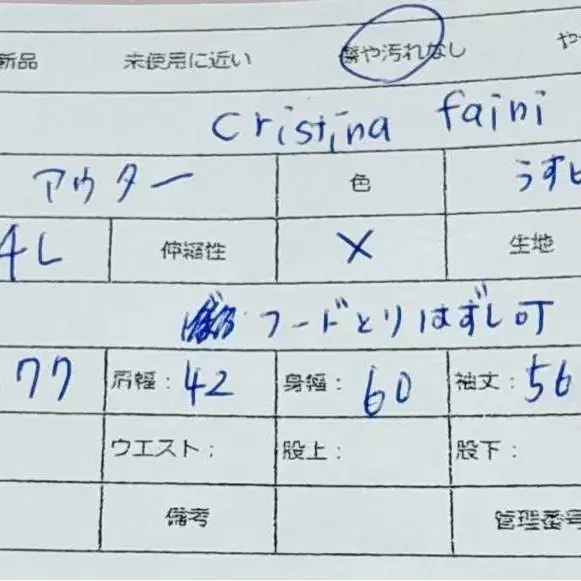 新品 未使用に近い 傷や汚れなし や
cristina faini
アウター 色 うすピ
4L 伸縮性 × 生地
フードとりはずし可
77 肩幅： 42 身幅： 60 袖丈： 56
ウエスト： 股上： 股下：
備考 管理番号